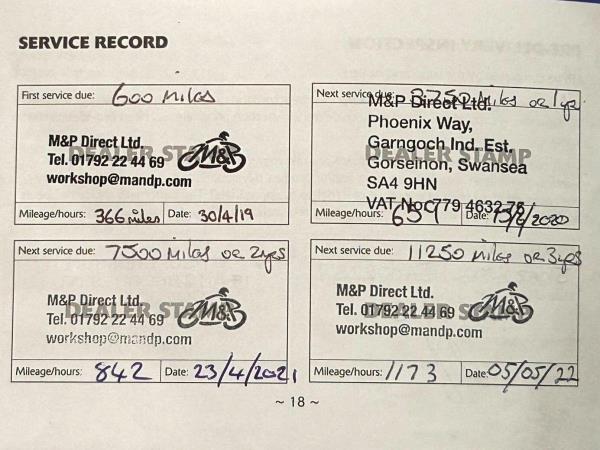 SERVICE RECORD
First service due: 600 miles
DEALER STAMP
M&P Direct Ltd.
Tel. 01792 22 44 69
workshop@mandp.com
M&P
Mileage/hours: 366 miles Date: 30/4/19
Next service due: 3750 Miles or 1yr
DEALER STAMP
M&P Direct Ltd.
Phoenix Way,
Garngoch Ind. Est.
Gorseinon, Swansea
SA4 9HN
VAT No: 779 4632 75
Mileage/hours: 659 Date: 2020
Next service due: 7500 Miles or 2yrs
DEALER STAMP
M&P Direct Ltd.
Tel. 01792 22 44 69
workshop@mandp.com
M&P
Mileage/hours: 842 Date: 23/4/2021
Next service due: 11250 miles or 3yrs
DEALER STAMP
M&P Direct Ltd.
Tel. 01792 22 44 69
workshop@mandp.com
M&P
Mileage/hours: 1173 Date: 05/05/22
~ 18 ~